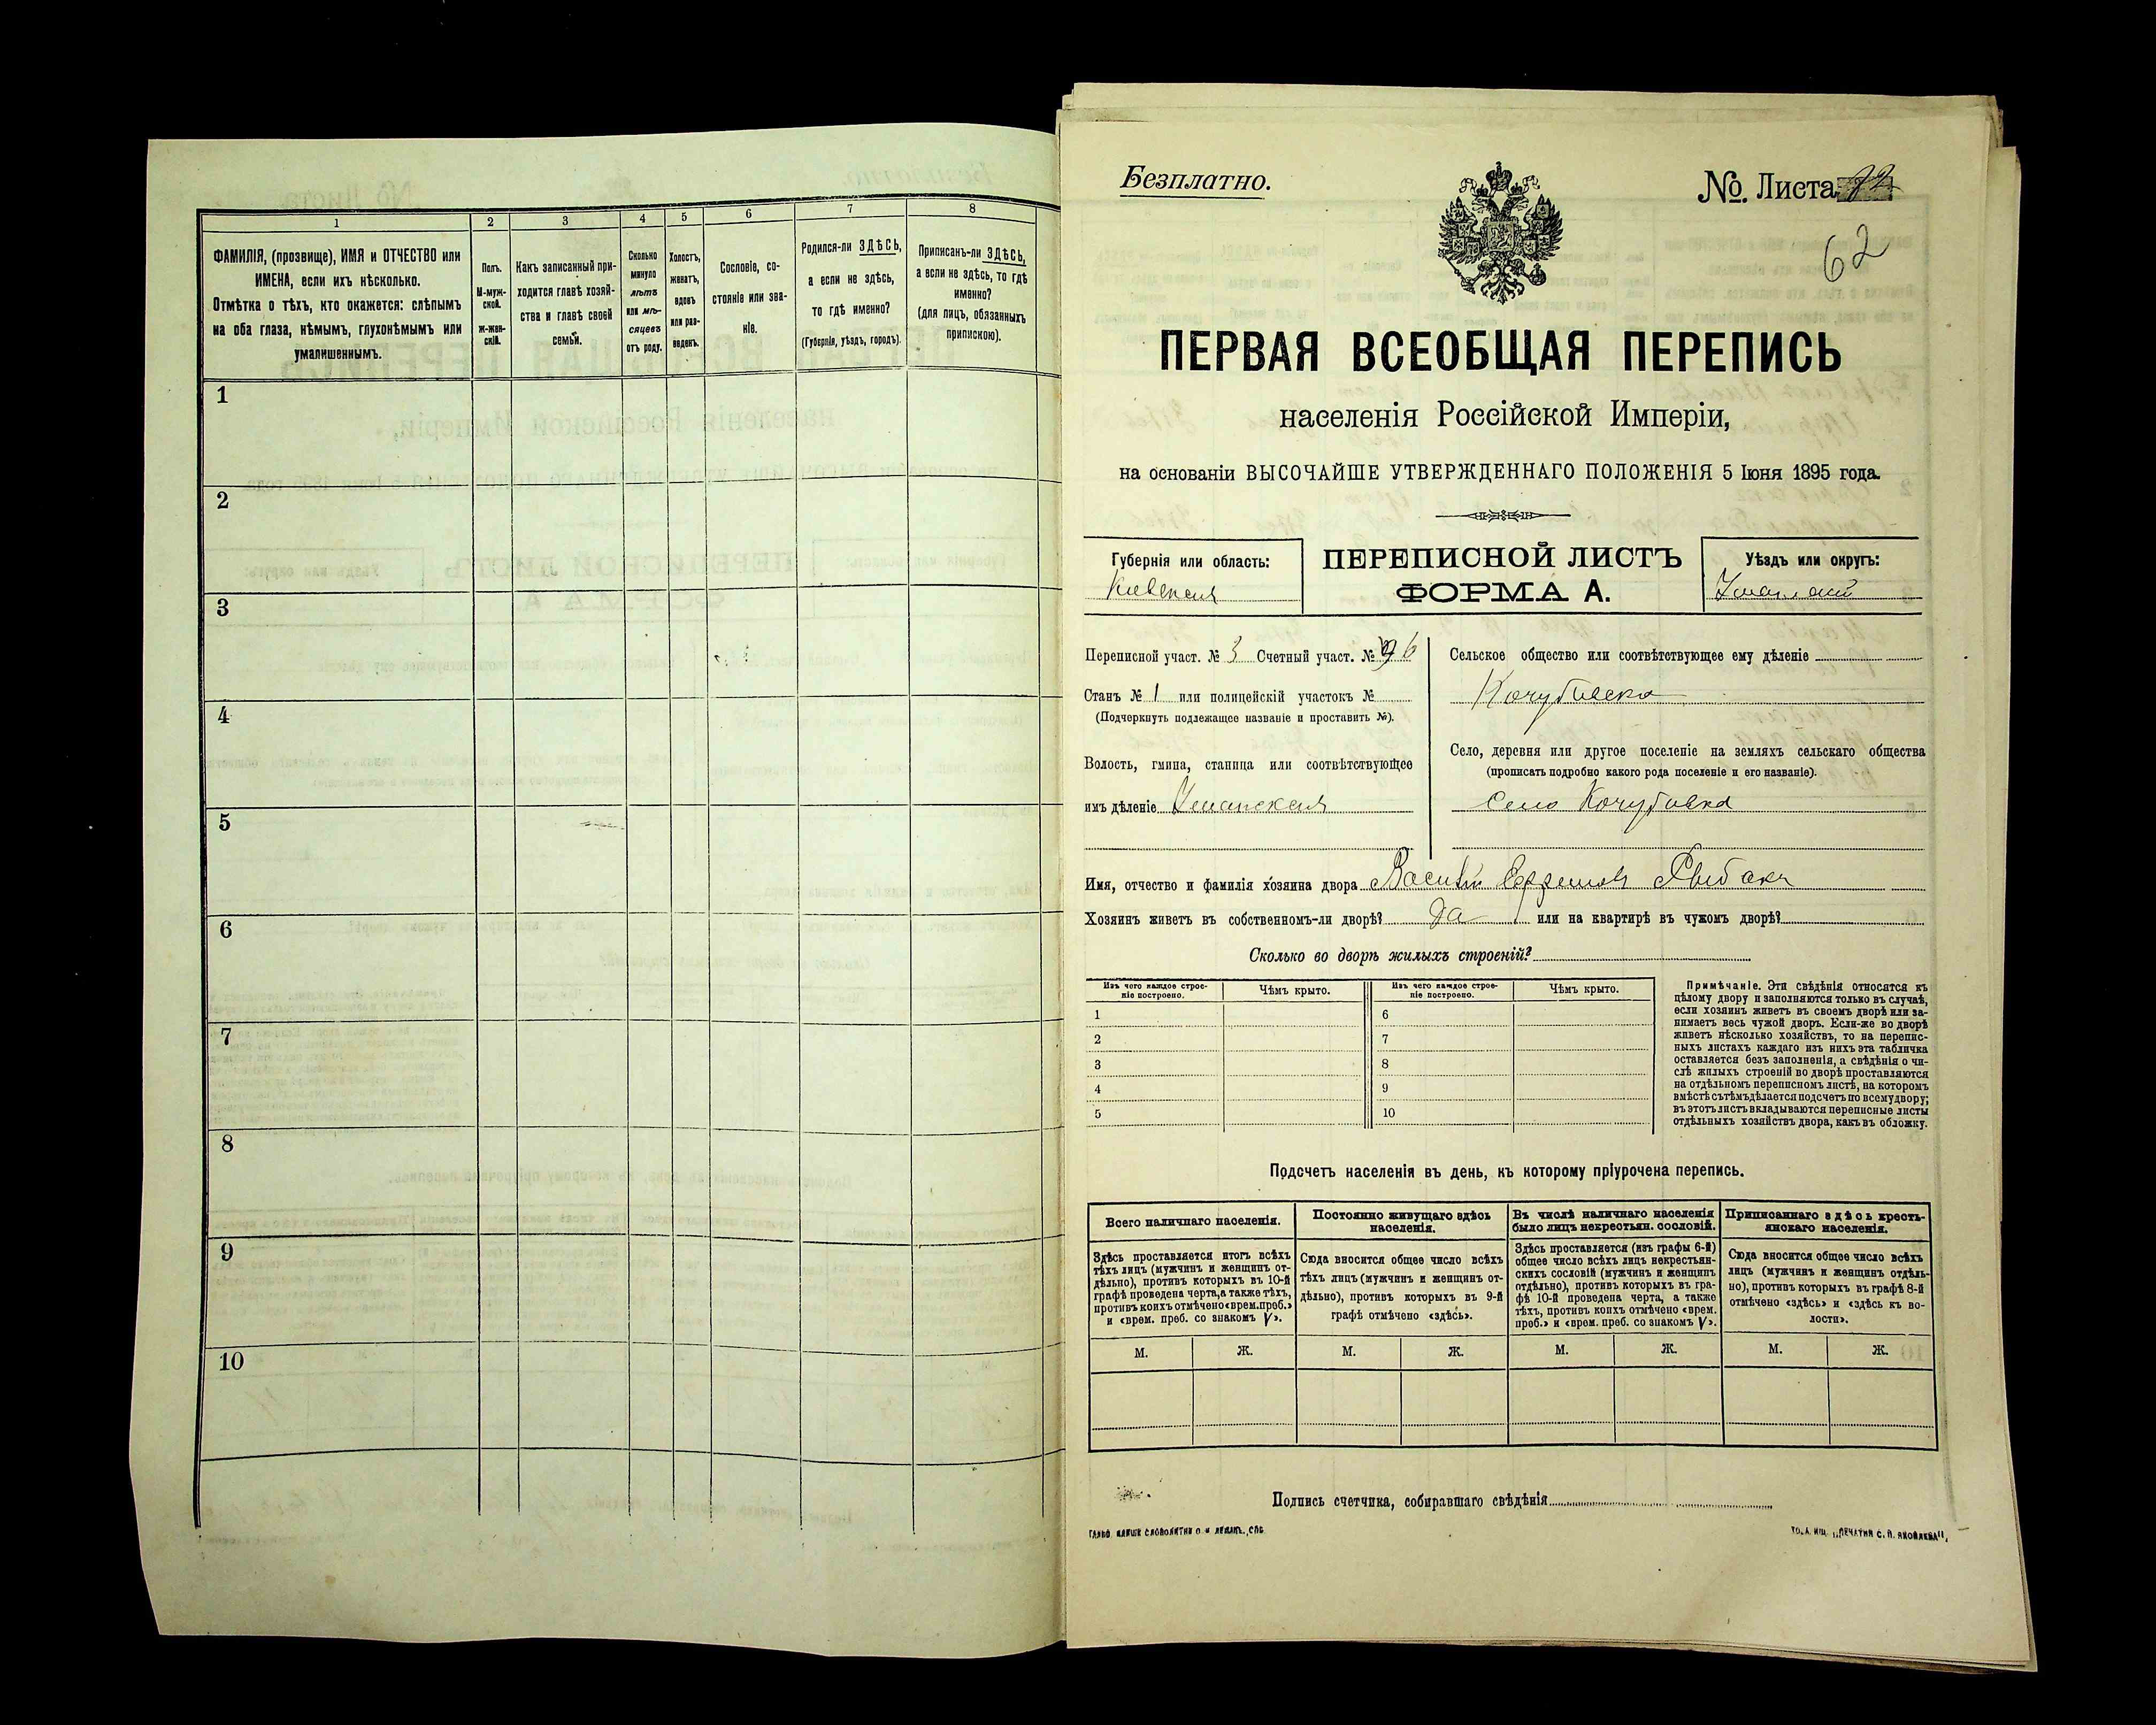 1
2
3
4
5
6
7
8
ФАМИЛІЯ, (прозвище), ИМЯ и ОТЧЕСТВО или
ИМЕНА, если ихъ нѣсколько.
Отмѣтка о тѣхъ, кто окажется: слѣпымъ
на оба глаза, нѣмымъ, глухонѣмымъ или
умалишеннымъ.
Полъ.
М-муж-
ской.
ж-жен-
скій.
Какъ записанный при-
ходится главѣ хозяй-
ства и главѣ своей
семьи.
Сколько
минуло
лѣтъ
или мѣ-
сяцевъ
отъ роду.
Холостъ,
женатъ,
вдовъ
или раз-
веденъ.
Сословіе, со-
стояніе или зва-
ніе.
Родился-ли ЗДѢСЬ,
а если не здѣсь,
то гдѣ именно?
(Губернія, уѣздъ, городъ).
Приписанъ-ли ЗДѢСЬ,
а если не здѣсь, то гдѣ
именно?
(для лицъ, обязанныхъ
припискою).
1
2
3
4
5
6
7
8
9
10
Безплатно.
№. Листа
62
ПЕРВАЯ ВСЕОБЩАЯ ПЕРЕПИСЬ
населенія Россійской Имперіи,
на основаніи ВЫСОЧАЙШЕ УТВЕРЖДЕННАГО ПОЛОЖЕНІЯ 5 Іюня 1895 года.
Губернія или область:
Кіевская
ПЕРЕПИСНОЙ ЛИСТЪ
ФОРМА А.
Уѣздъ или округъ:
Уманскій
Переписной участ. № 3 Счетный участ. № 96
Станъ № 1 или полицейскій участокъ №
(Подчеркнуть подлежащее названіе и проставить №).
Волость, гмина, станица или соотвѣтствующее
имъ дѣленіе Уманская
Сельское общество или соотвѣтствующее ему дѣленіе
Кочубивска
Село, деревня или другое поселеніе на земляхъ сельскаго общества
(прописать подробно какого рода поселеніе и его названіе).
Село Кочубивка
Имя, отчество и фамилія хозяина двора Василій Ефремовъ Рыбакъ
Хозяинъ живетъ въ собственномъ-ли дворѣ? да или на квартирѣ въ чужомъ дворѣ?
Сколько во дворѣ жилыхъ строеній?
Изъ чего каждое строе-
ніе построено.
Чѣмъ крыто.
Изъ чего каждое строе-
ніе построено.
Чѣмъ крыто.
1
2
3
4
5
6
7
8
9
10
Примѣчаніе. Эти свѣдѣнія относятся къ
цѣлому двору и заполняются только въ случаѣ,
если хозяинъ живетъ въ своемъ дворѣ или за-
нимаетъ весь чужой дворъ. Если-же во дворѣ
живетъ нѣсколько хозяйствъ, то на перепис-
ныхъ листахъ каждаго изъ нихъ эта табличка
оставляется безъ заполненія, а свѣдѣнія о чи-
слѣ жилыхъ строеній во дворѣ проставляются
на отдѣльномъ переписномъ листѣ, на которомъ
вмѣстѣ съ тѣмъ дѣлается подсчетъ по всему двору;
въ этотъ листъ вкладываются переписные листы
отдѣльныхъ хозяйствъ двора, какъ въ обложку.
Подсчетъ населенія въ день, къ которому пріурочена перепись.
Всего наличнаго населенія.
Постоянно живущаго здѣсь
населенія.
Въ числѣ наличнаго населенія
было лицъ некрестьян. сословій.
Приписаннаго здѣсь кресть-
янскаго населенія.
Здѣсь проставляется итогъ всѣхъ
тѣхъ лицъ (мужчинъ и женщинъ от-
дѣльно), противъ которыхъ въ 10-й
графѣ проведена черта, а также тѣхъ,
противъ коихъ отмѣчено «врем. преб.»
и «врем. преб. со знакомъ V».
Сюда вносится общее число всѣхъ
тѣхъ лицъ (мужчинъ и женщинъ от-
дѣльно), противъ которыхъ въ 9-й
графѣ отмѣчено «здѣсь».
Здѣсь проставляется (изъ графы 6-й)
общее число всѣхъ лицъ некрестьян-
скихъ сословій (мужчинъ и женщинъ
отдѣльно), противъ которыхъ въ гра-
фѣ 10-й проведена черта, а также
тѣхъ, противъ коихъ отмѣчено «врем.
преб.» и «врем. преб. со знакомъ V».
Сюда вносится общее число всѣхъ
лицъ (мужчинъ и женщинъ отдѣль-
но), противъ которыхъ въ графѣ 8-й
отмѣчено «здѣсь» и «здѣсь къ во-
лости».
М. Ж. М. Ж. М. Ж. М. Ж.
Подпись счетчика, собиравшаго свѣдѣнія